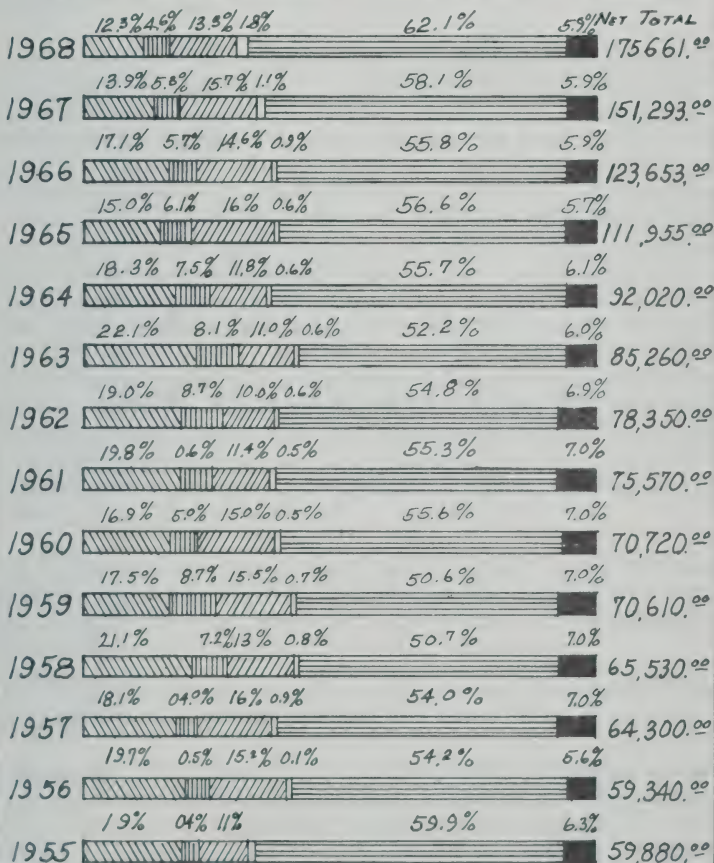 12.3% 4.6% 13.3% 1.8% 62.1% 5.9% NET TOTAL
1968 175661.00
13.9% 5.3% 15.7% 1.1% 58.1% 5.9%
1967 151,293.00
17.1% 5.7% 14.6% 0.9% 55.8% 5.9%
1966 123,653.00
15.0% 6.1% 16% 0.6% 56.6% 5.7%
1965 111,955.00
18.3% 7.5% 11.8% 0.6% 55.7% 6.1%
1964 92,020.00
22.1% 8.1% 11.0% 0.6% 52.2% 6.0%
1963 85,260.00
19.0% 8.7% 10.0% 0.6% 54.8% 6.9%
1962 78,350.00
19.8% 0.6% 11.4% 0.5% 55.3% 7.0%
1961 75,570.00
16.9% 5.0% 15.0% 0.5% 55.6% 7.0%
1960 70,720.00
17.5% 8.7% 15.5% 0.7% 50.6% 7.0%
1959 70,610.00
21.1% 7.2% 13% 0.8% 50.7% 7.0%
1958 65,530.00
18.1% 04.0% 16% 0.9% 54.0% 7.0%
1957 64,300.00
19.7% 0.5% 15.2% 0.1% 54.2% 5.6%
1956 59,340.00
19% 04% 11% 59.9% 6.3%
1955 59,880.00